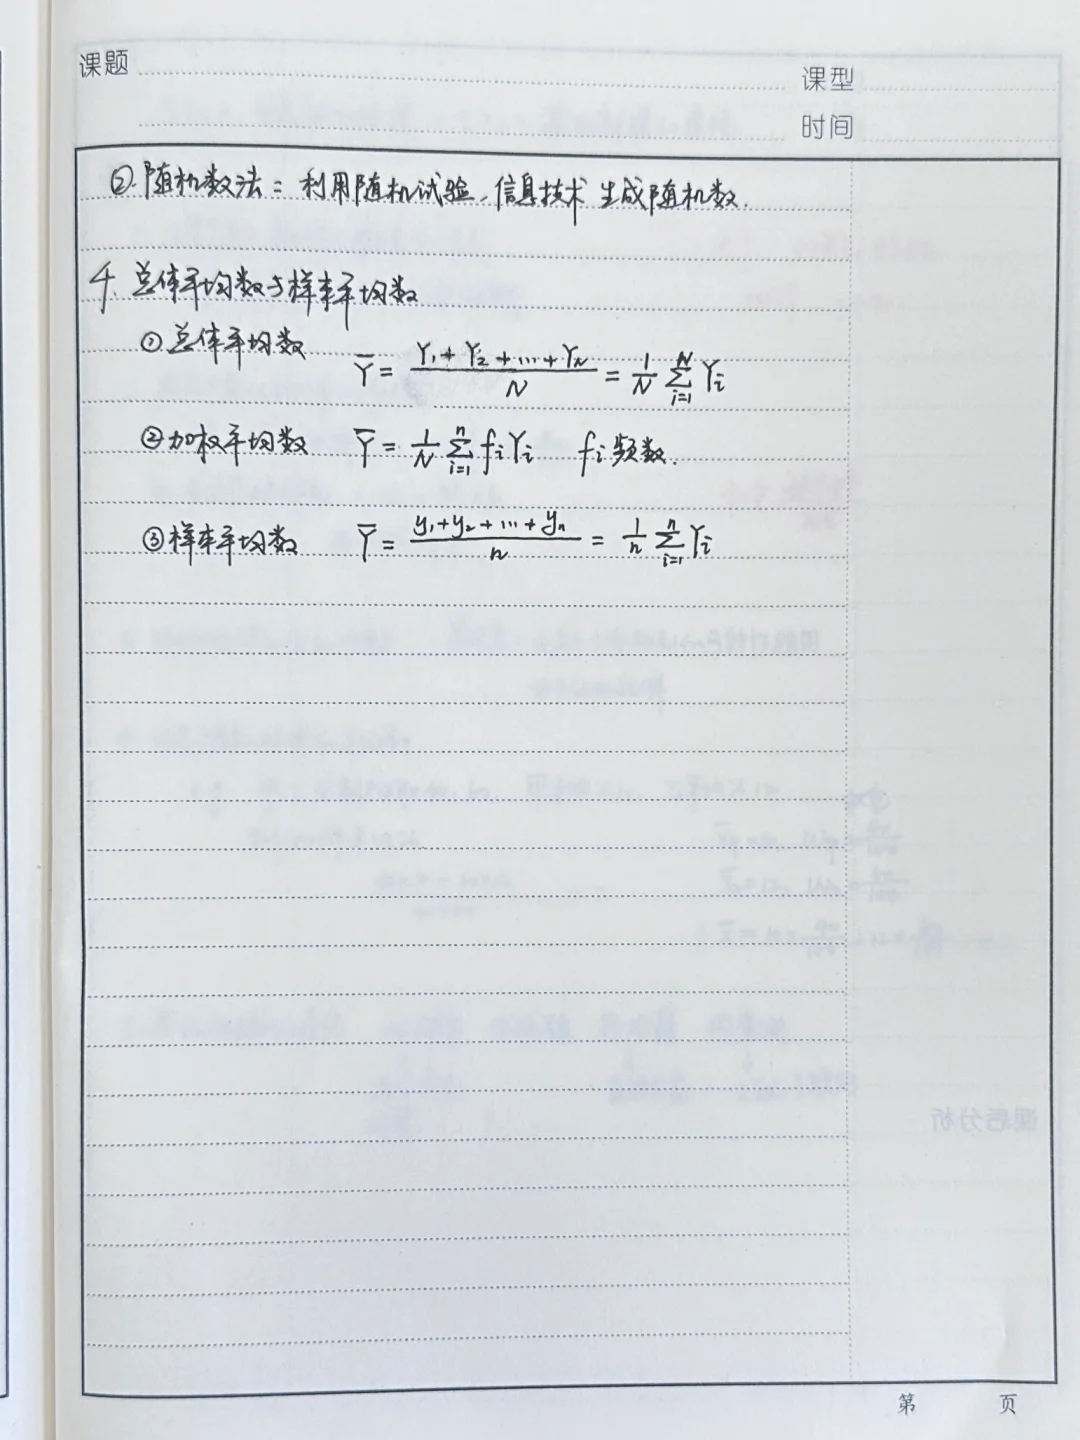 课题
课型
时间
②.随机数法:利用随机试验、信息技术生成随机数.
4. 总体平均数与样本平均数
①总体平均数 Ȳ = (Y₁+Y₂+…+Y_N)/N = 1/N ∑_{i=1}^{N} Y_i
②加权平均数 Ȳ = 1/N ∑_{i=1}^{n} f_i Y_i f_i 频数.
③样本平均数 Ȳ = (y₁+y₂+…+y_n)/n = 1/n ∑_{i=1}^{n} Y_i
课后分析
第 页